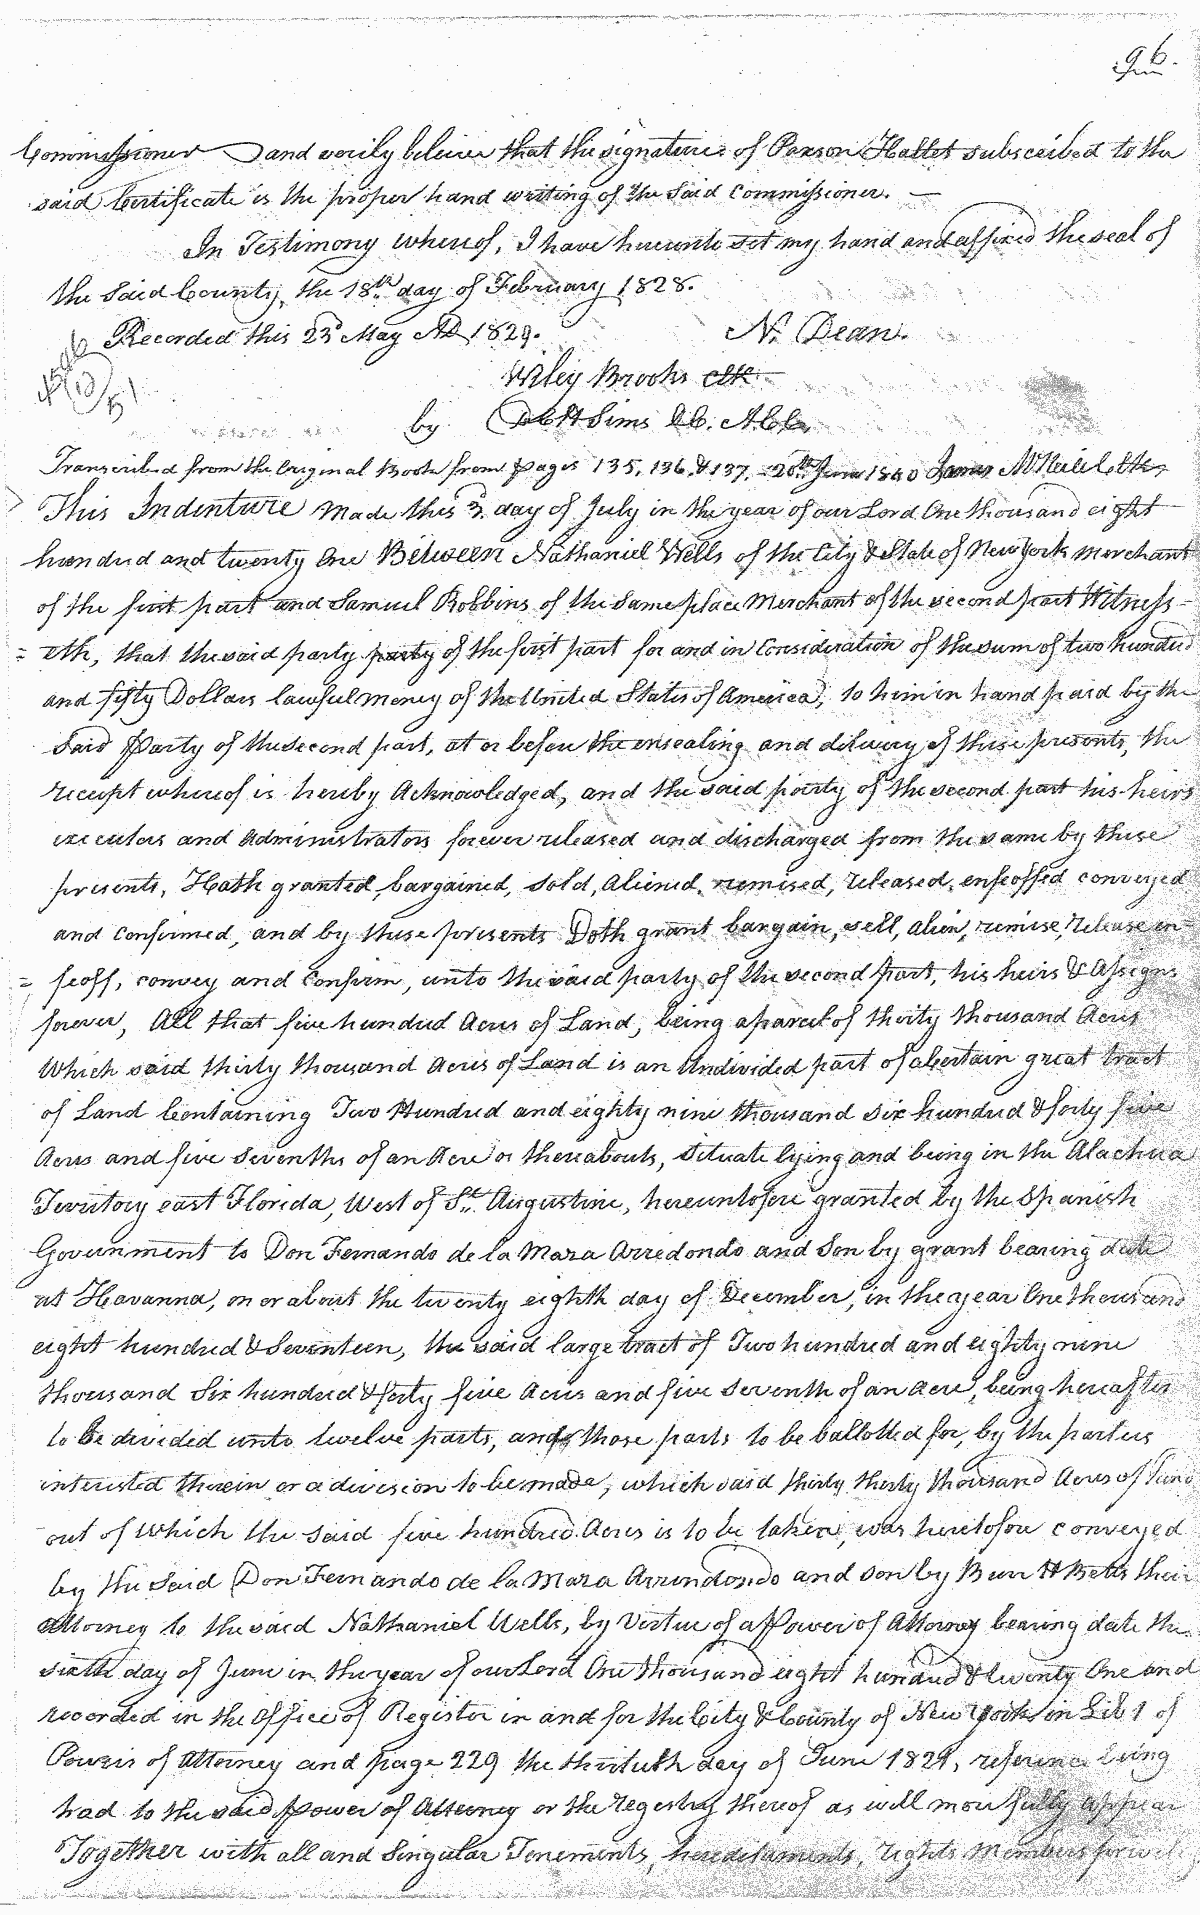 96.
Commissioner and verily believe that the signature of Paxson Hallet subscribed to the
said Certificate is the proper hand writing of the Said Commissioner. —
In Testimony whereof, I have hereunto set my hand and affixed the seal of
the Said County, the 18th day of February 1828.
Recorded this 23d May AD, 1829.
N. Dean.
Wiley Brooks Clk
by Sims DC. A.C.C.
Transcribed from the Original Book from pages 135, 136, & 137, 20th June 1840 James McNeill Clk
This Indenture Made this 3d day of July in the year of our Lord One thousand eight
hundred and twenty One Between Nathaniel Wells of the City & State of New York Merchant
of the first part and Samuel Robbins of the Same place Merchant of the second part Witness-
= eth, that the said party party of the first part for and in Consideration of the sum of two hundred
and fifty Dollars lawful money of the United States of America, to him in hand paid by the
Said Party of the second part, at or before the ensealing and delivery of these presents, the
receipt whereof is hereby Acknowledged, and the said party of the second part his heirs
executors and Administrators forever released and discharged from the same by these
presents, Hath granted, bargained, sold, Aliened, remised, released, enfeoffed conveyed
and confirmed, and by these presents Doth grant bargain, sell, alien, remise, release en-
= feoff, convey and Confirm, unto the said party of the second part, his heirs & Assigns
forever, All that five hundred Acres of Land, being a parcel of thirty thousand Acres
Which said thirty thousand Acres of Land is an Undivided part of a Certain great tract
of Land Containing Two Hundred and eighty nine thousand six hundred & forty five
Acres and five sevenths of an Acre or thereabouts, situate lying and being in the Alachua
Territory east Florida, West of St. Augustine, hereuntofore granted by the Spanish
Government to Don Fernando de la Maza Arredondo and Son by grant bearing date
at Havanna, on or about the twenty eighth day of December, in the year One thousand
eight hundred & Seventeen, the said large tract of Two hundred and eighty nine
thousand Six hundred & forty five Acres and five seventh of an Acre, being hereafter
to be divided into twelve parts, and those parts to be ballotted for, by the parties
interested therein or a division to be made, which said thirty thirty thousand Acres of Land
out of Which the said five hundred Acres is to be taken, was heretofore conveyed
by the Said Don Fernando de la Maza Arrindondo and son by Burr H Betts their
attorney to the said Nathaniel Wells, by Virtue of a Power of Attorney bearing date the
sixth day of June in the year of our Lord One thousand eight hundred & twenty One and
recorded in the Office of Register in and for the City & County of New York in Lib 1 of
Powers of Attorney and page 229 the thirtieth day of June 1821, reference being
had to the said Power of Attorney or the registry thereof as will more fully appear
Together with all and Singular Tenements, hereditaments, rights Members